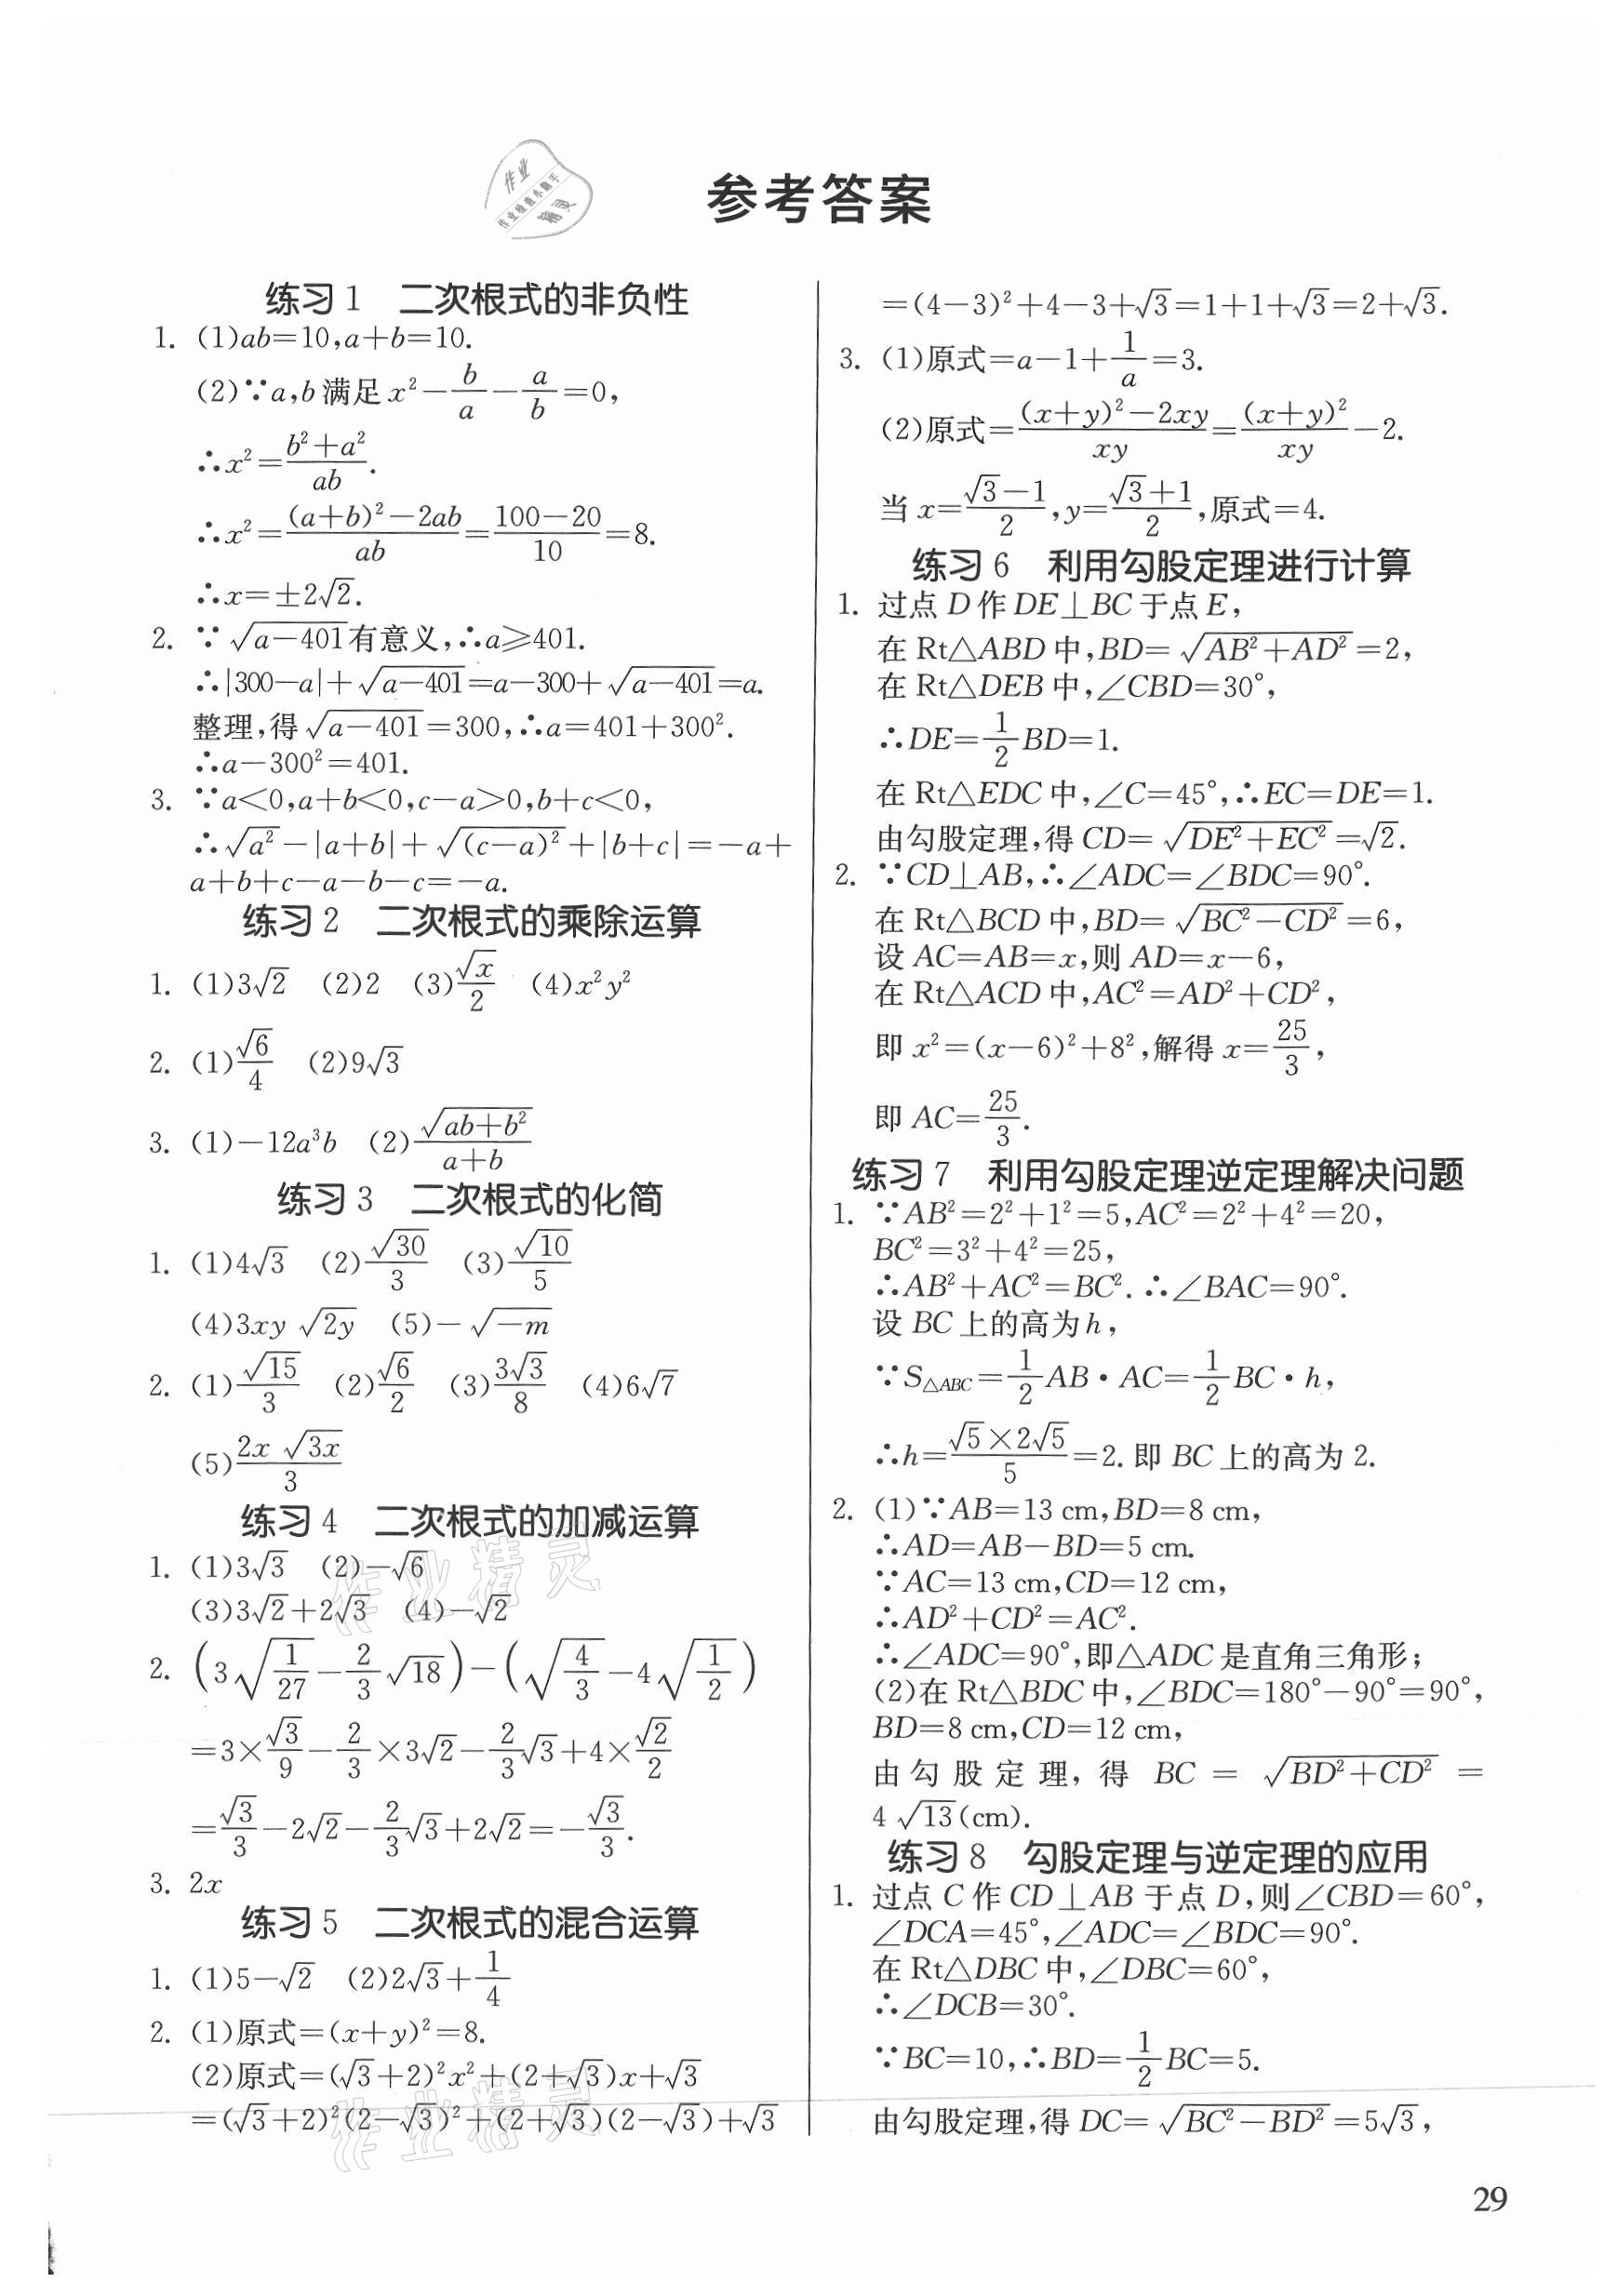 参考答案
作业
作业检查小助手
精灵
练习1 二次根式的非负性
1. (1)ab=10,a+b=10.
(2)∵a,b满足x²-b/a-a/b=0,
∴x²=(b²+a²)/ab.
∴x²=((a+b)²-2ab)/ab=(100-20)/10=8.
∴x=±2√2.
2. ∵√(a-401)有意义,∴a≥401.
∴|300-a|+√(a-401)=a-300+√(a-401)=a.
整理,得√(a-401)=300,∴a=401+300².
∴a-300²=401.
3. ∵a<0,a+b<0,c-a>0,b+c<0,
∴√(a²)-|a+b|+√((c-a)²)+|b+c|=-a+
a+b+c-a-b-c=-a.
练习2 二次根式的乘除运算
1. (1)3√2 (2)2 (3)√x/2 (4)x²y²
2. (1)√6/4 (2)9√3
3. (1)-12a³b (2)√(ab+b²)/(a+b)
练习3 二次根式的化简
1. (1)4√3 (2)√30/3 (3)√10/5
(4)3xy√(2y) (5)-√(-m)
2. (1)√15/3 (2)√6/2 (3)3√3/8 (4)6√7
(5)2x√(3x)/3
练习4 二次根式的加减运算
1. (1)3√3 (2)-√6
(3)3√2+2√3 (4)-√2
2. (3√(1/27)-2/3√18)-(√(4/3)-4√(1/2))
=3×√3/9-2/3×3√2-2/3√3+4×√2/2
=√3/3-2√2-2/3√3+2√2=-√3/3.
3. 2x
练习5 二次根式的混合运算
1. (1)5-√2 (2)2√3+1/4
2. (1)原式=(x+y)²=8.
(2)原式=(√3+2)²x²+(2+√3)x+√3
=(√3+2)²(2-√3)²+(2+√3)(2-√3)+√3
=(4-3)²+4-3+√3=1+1+√3=2+√3.
3. (1)原式=a-1+1/a=3.
(2)原式=((x+y)²-2xy)/xy=(x+y)²/xy-2.
当x=(√3-1)/2,y=(√3+1)/2,原式=4.
练习6 利用勾股定理进行计算
1. 过点D作DE⊥BC于点E,
在Rt△ABD中,BD=√(AB²+AD²)=2,
在Rt△DEB中,∠CBD=30°,
∴DE=1/2BD=1.
在Rt△EDC中,∠C=45°,∴EC=DE=1.
由勾股定理,得CD=√(DE²+EC²)=√2.
2. ∵CD⊥AB,∴∠ADC=∠BDC=90°.
在Rt△BCD中,BD=√(BC²-CD²)=6,
设AC=AB=x,则AD=x-6,
在Rt△ACD中,AC²=AD²+CD²,
即x²=(x-6)²+8²,解得x=25/3,
即AC=25/3.
练习7 利用勾股定理逆定理解决问题
1. ∵AB²=2²+1²=5,AC²=2²+4²=20,
BC²=3²+4²=25,
∴AB²+AC²=BC².∴∠BAC=90°.
设BC上的高为h,
∵S△ABC=1/2AB·AC=1/2BC·h,
∴h=(√5×2√5)/5=2.即BC上的高为2.
2. (1)∵AB=13 cm,BD=8 cm,
∴AD=AB-BD=5 cm.
∵AC=13 cm,CD=12 cm,
∴AD²+CD²=AC².
∴∠ADC=90°,即△ADC是直角三角形;
(2)在Rt△BDC中,∠BDC=180°-90°=90°,
BD=8 cm,CD=12 cm,
由勾股定理,得BC=√(BD²+CD²)=
4√13(cm).
练习8 勾股定理与逆定理的应用
1. 过点C作CD⊥AB于点D,则∠CBD=60°,
∠DCA=45°,∠ADC=∠BDC=90°.
在Rt△DBC中,∠DBC=60°,
∴∠DCB=30°.
∵BC=10,∴BD=1/2BC=5.
由勾股定理,得DC=√(BC²-BD²)=5√3,
作业精灵
作业精灵
29